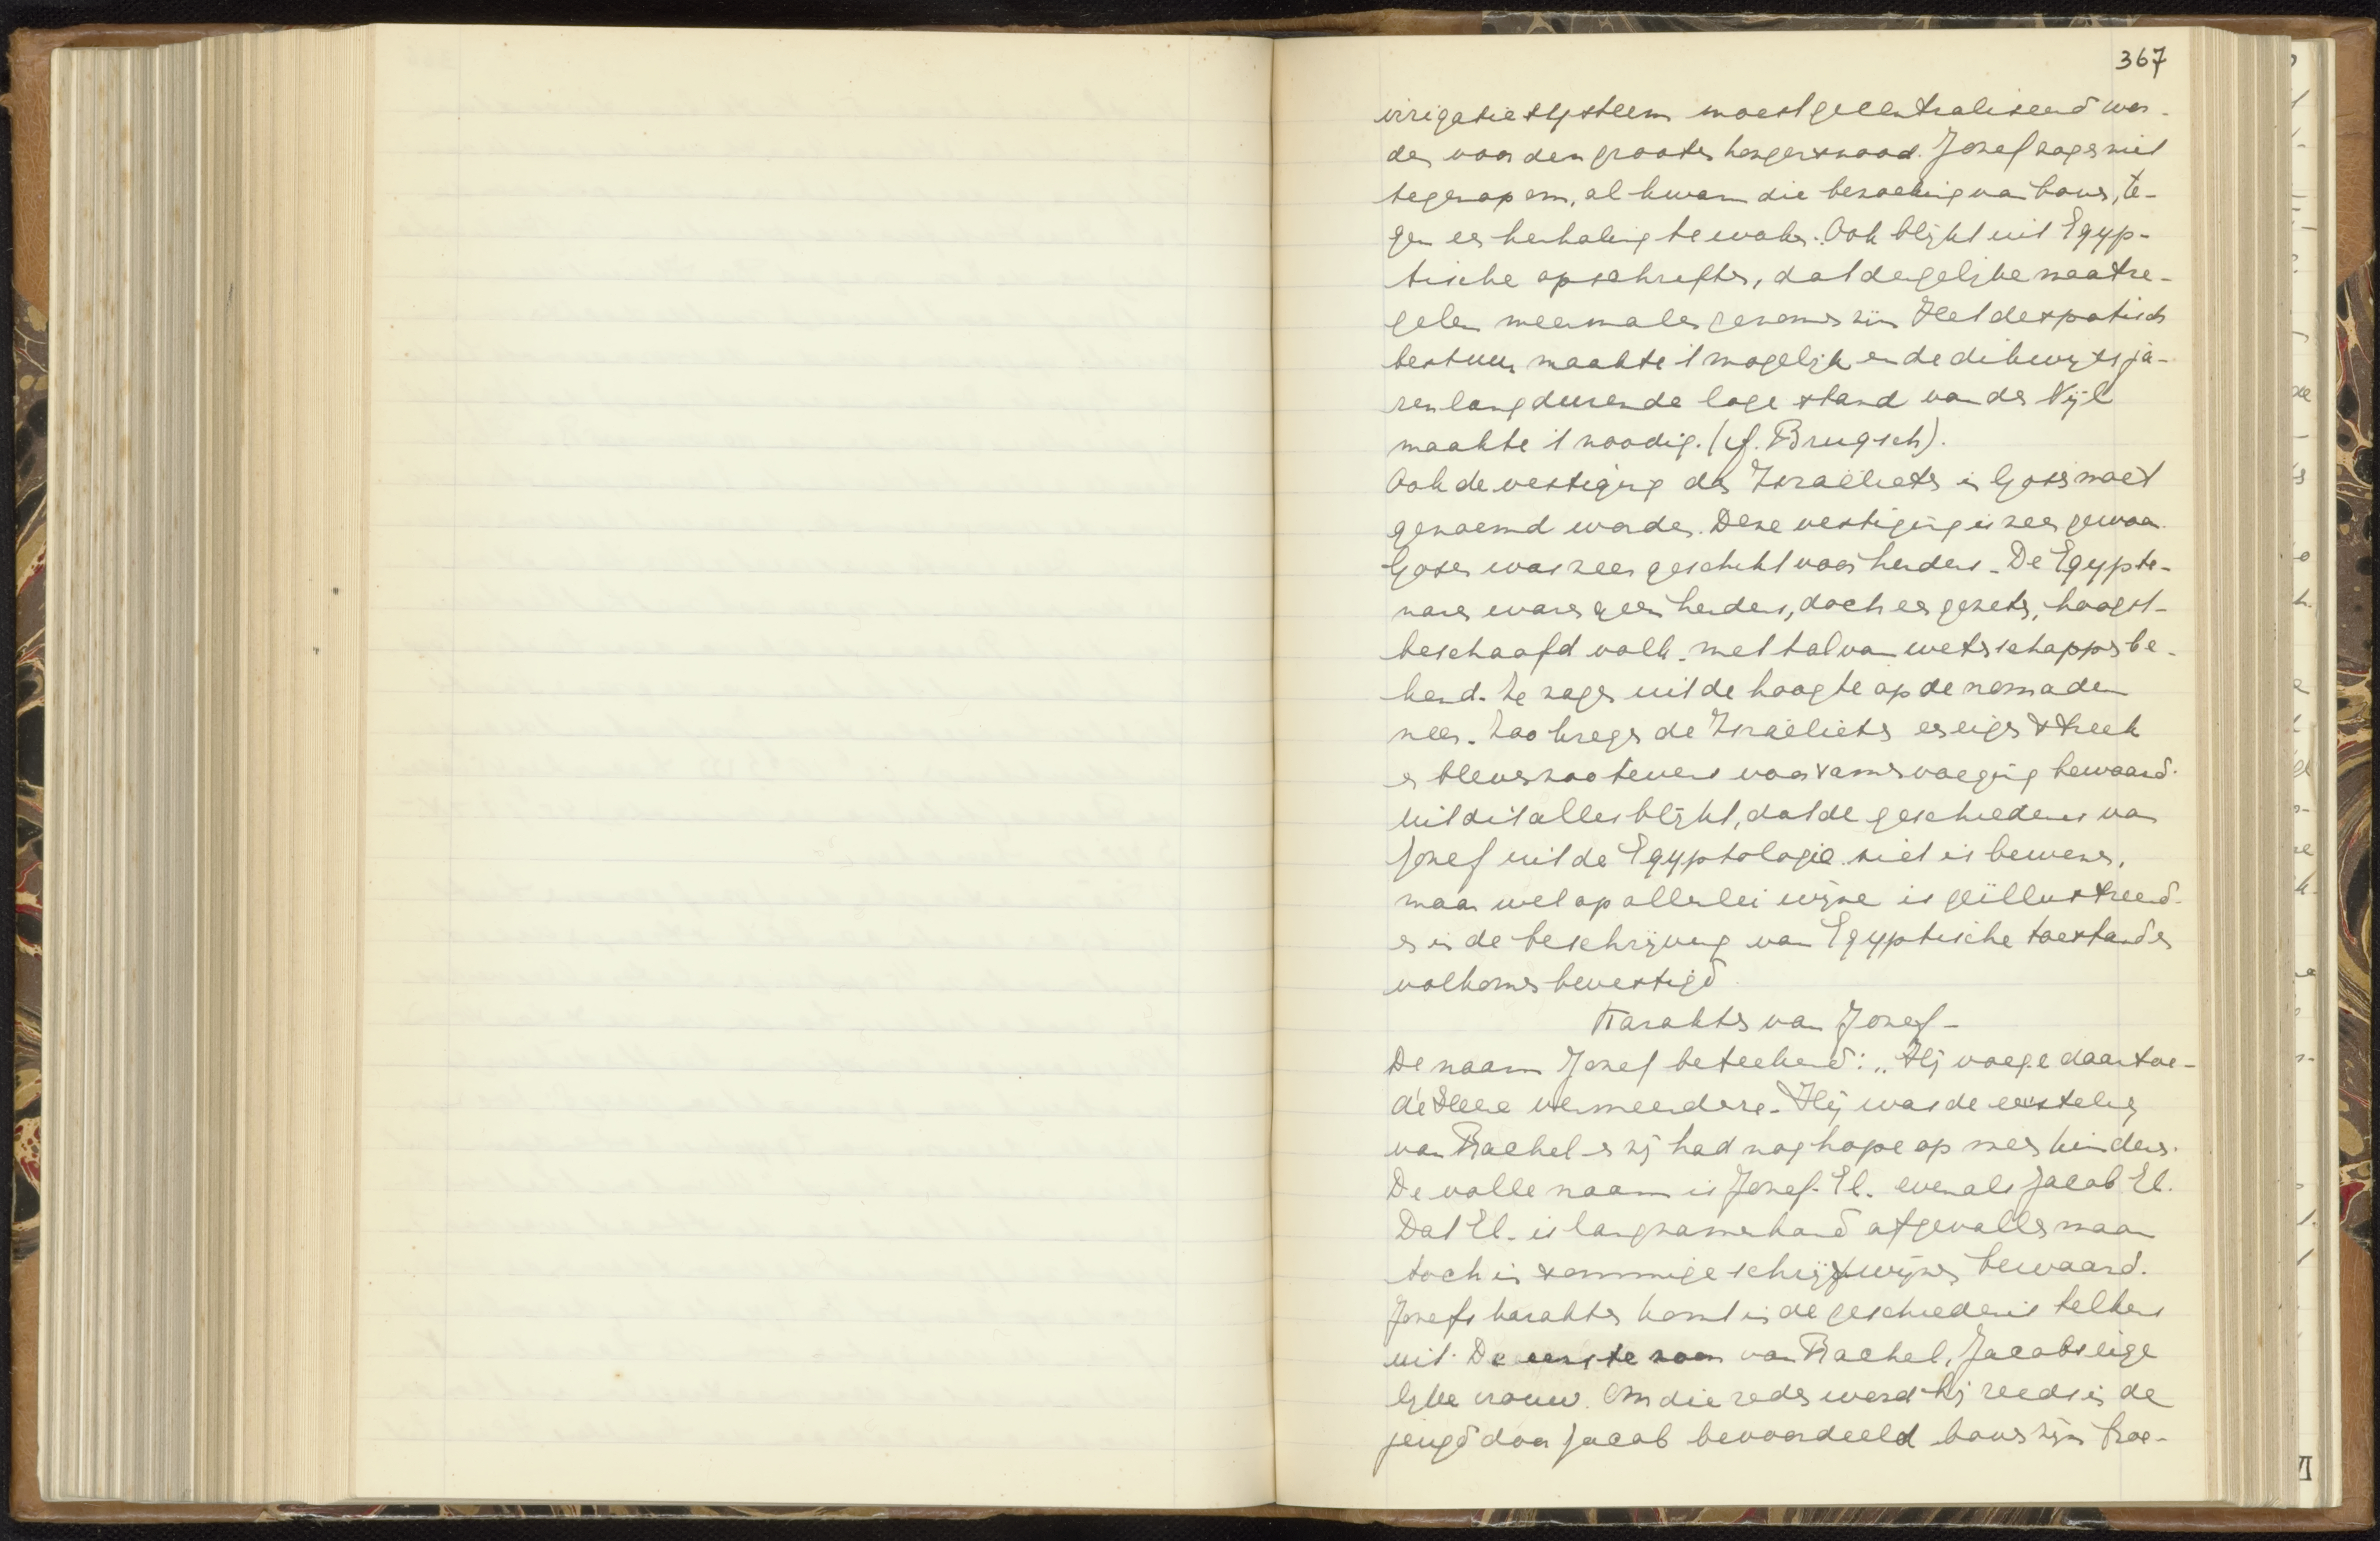 367
irrigatiesysteem moest gecentraliseerd wor-
den voor den grooten hongersnood. Jozef zag er niet
tegenop om, al kwam die bezoeking van boven, te-
gen een herhaling te waken. Ook blijkt uit Egyp-
tische opschriften, dat dergelijke maatre-
gelen meermalen genomen zijn Het despotisch
bestuur maakte 't mogelijk en de dikwijls ja-
renlang durende lage stand van den Nijl
maakte 't noodig. (cf. Brugsch).
Ook de vestiging der Israëlieten in Gosen moet
genoemd worden. Deze vestiging is zeer gewoon.
Gosen was zeer geschikt voor herders. De Egypte-
naren waren geen herders, doch een gezeten, hoogst-
beschaafd volk. met tal van wetenschappen be-
kend. Ze zagen uit de hoogte op de nomaden
neer. Zoo kregen de Israëlieten een eigen streek
en bleven zoo tevens voor samenvoeging bewaard.
Uit dit alles blijkt, dat de geschiedenis van
Jozef uit de Egyptologie niet is bewezen,
maar wel op allerlei wijze is geïllustreerd.
en in de beschrijving van Egyptische toestanden
volkomen bevestigd.
Karakter van Jozef-
De naam Jozef beteekend: „Hij voege daartoe-
de Heere vermeerdere. Hij was de eersteling
van Rachel en zij had nog hope op meer kinders.
De volle naam is Jozef-El. evenals Jacob El.
Dat El. is langzamerhand afgevallen maar
toch in sommige schrijfwijzen bewaard.
Jozefs karakter komt in de geschiedenis telkens
uit. De eerste zoon van Rachel, Jacobs eige
lijke vrouw. Om die reden werd hij reeds in de
jeugd door Jacob bevoordeeld boven zijn broe-